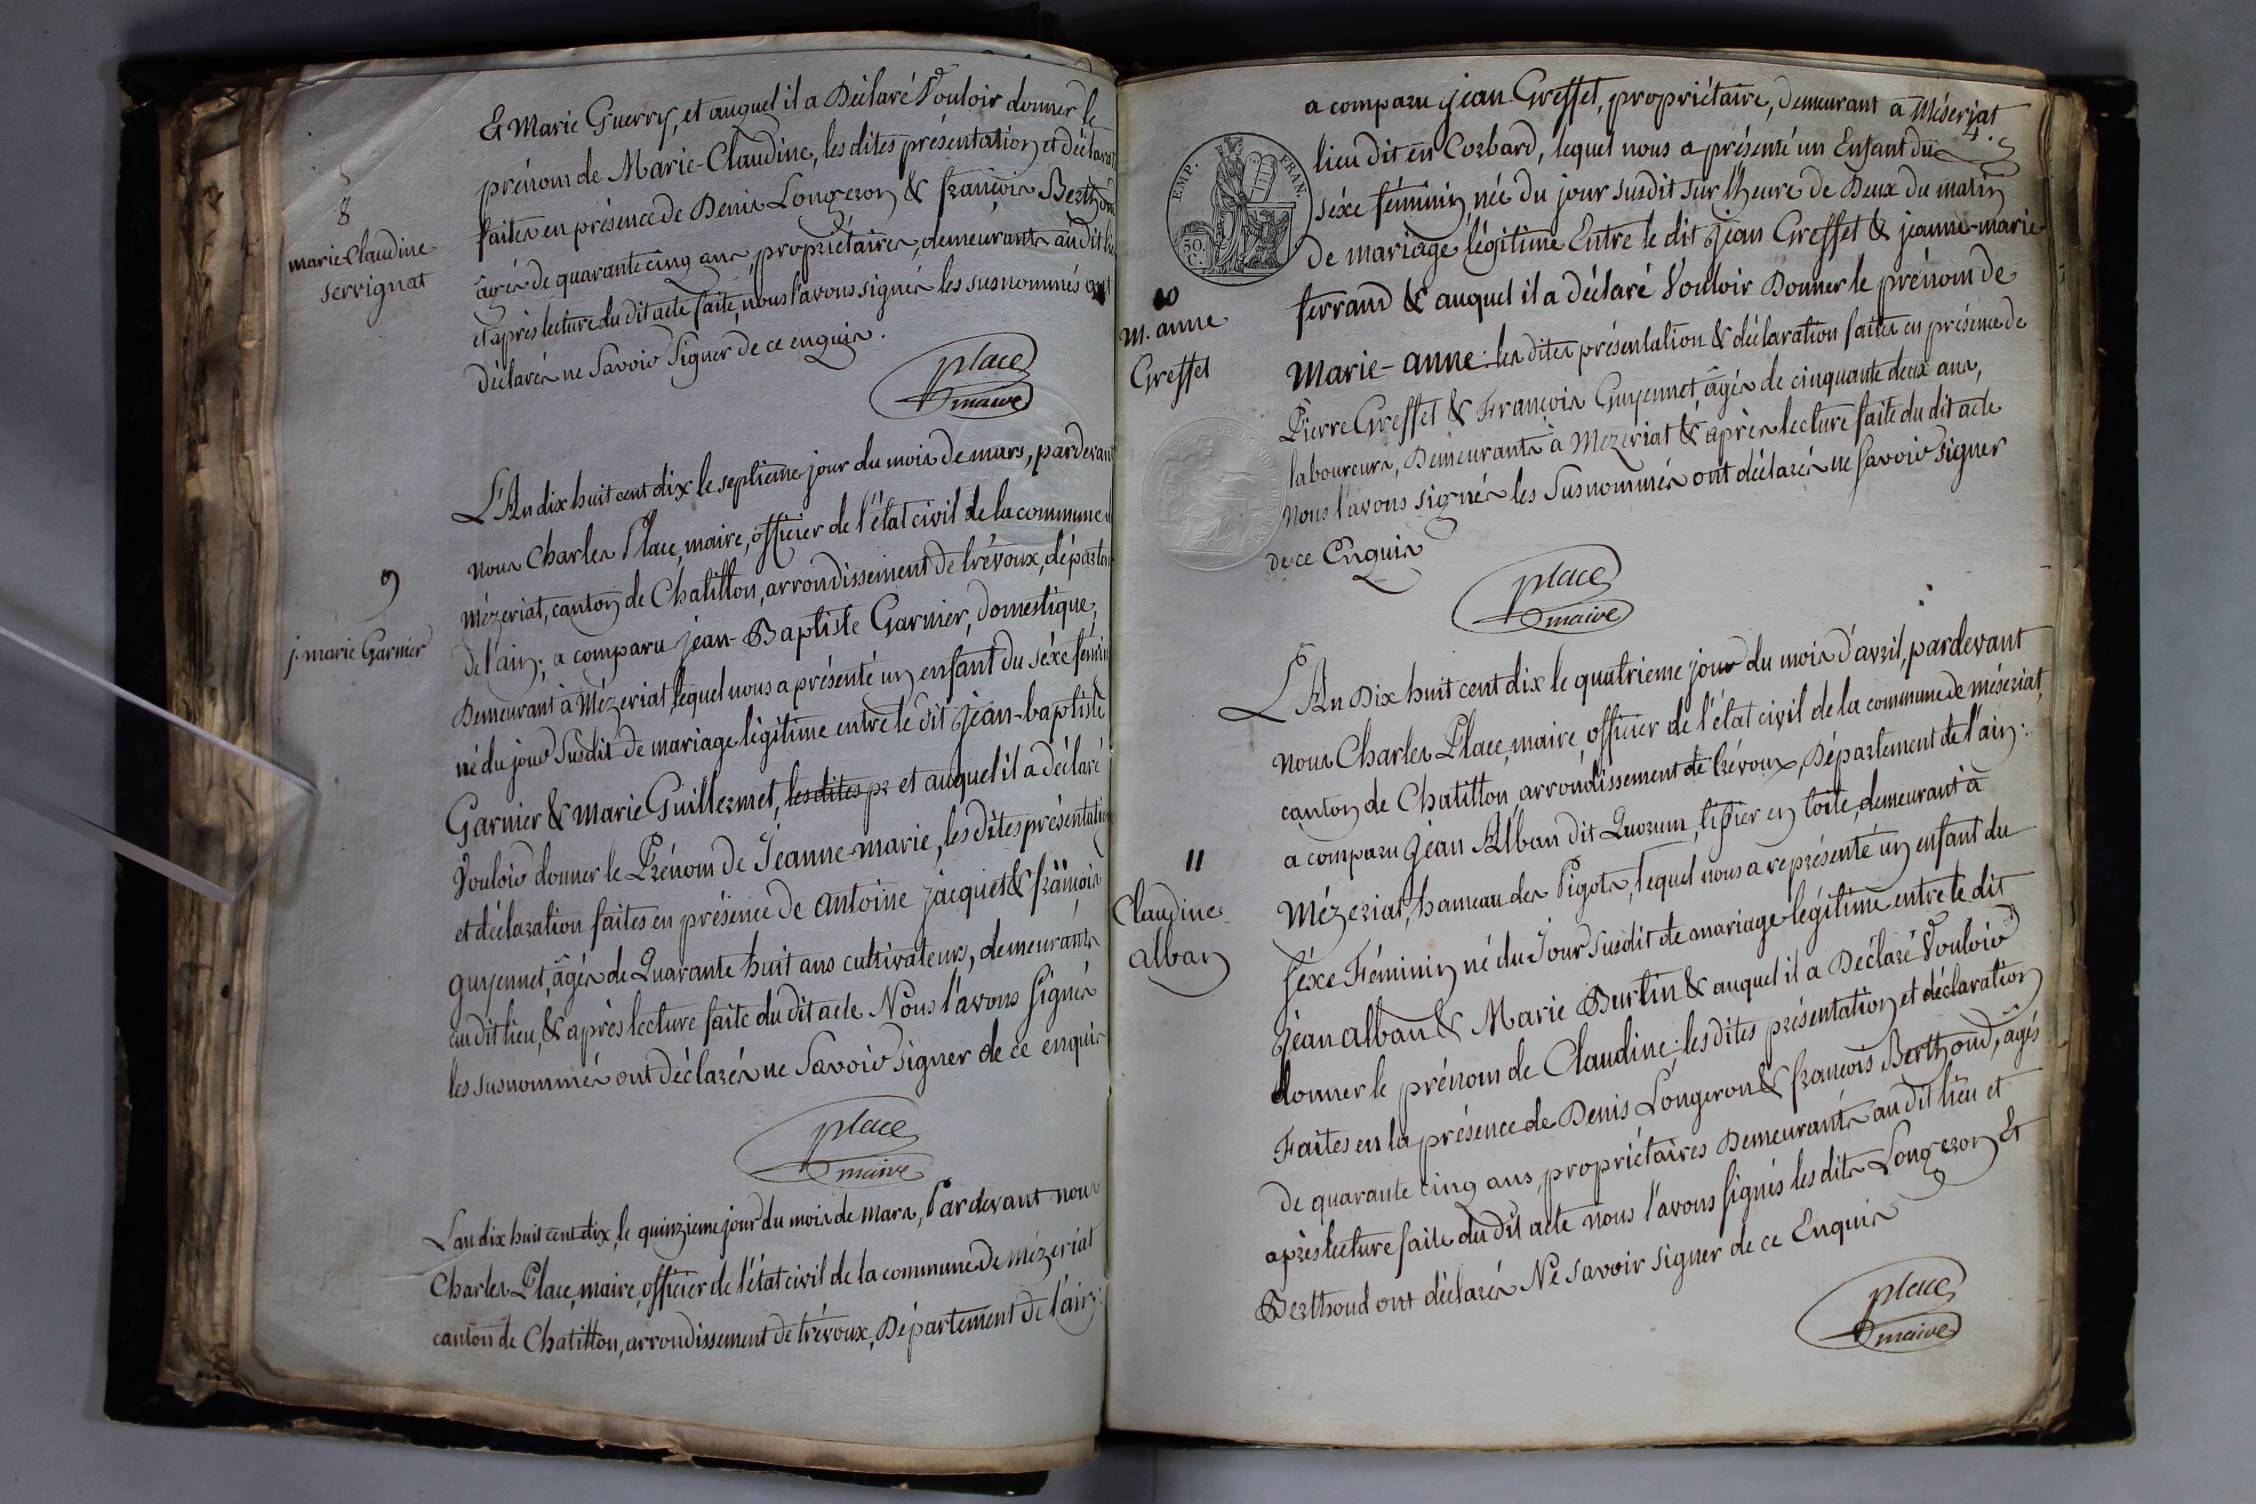 8
marie Claudine
servignat
& Marie Guerry, et auquel il a Déclaré Vouloir donner le
prénom de Marie-Claudine, les dites présentation et déclarat
faites en présence de Denis Longeron & françois Berthou
âgés de quarante cinq ans, propriétaires, demeurants au dit li
et après lecture du dit acte faite, nous l'avons signés les susnommés ont
déclarés ne Savoir Signer de ce enquis.
place
maire
9
j. marie Garnier
L'An dix huit cent dix le septieme jour du mois de mars, pardevant
nous Charles Place, maire, officier de l'état civil de la commune d
Mézeriat, canton de Chatillon, arrondissement de trévoux, départem
de l'ain; a comparu jean-Baptiste Garnier, domestique,
Demeurant à Mézeriat, lequel nous a présenté un enfant du séxe fémin
né du jour Susdit de mariage légitime entre le dit jean-baptiste
Garnier & Marie Guillermet, les dites pr et auquel il a déclaré
Vouloir donner le Prénom de Jeanne-marie, les dites présentation
et déclaration faites en présence de antoine jacquet & françois
guyennet, âgés de Quarante huit ans cultivateurs, demeurants
au dit lieu, & après lecture faite du dit acte Nous l'avons Signés
les susnommés ont déclarés ne Savoir signer de ce enquis
place
maire
L'an dix huit cent dix, le quinzieme jour du mois de mars, Pardevant nous
Charles Place, maire, officier de l'état civil de la commune de Mézeriat
canton de Chatillon, arrondissement de trévoux, Département de l'ain:
4.
EMP. FRAN.
50.
C.
10
m. anne
Greffet
a comparu jean Greffet, propriétaire, demeurant a Méseriat
lieu dit en Corbard, lequel nous a présenté un Enfant du
séxe féminin, née du jour susdit sur l'heure de Deux du matin
de mariage légitime Entre le dit jean Greffet & jeanne-marie
ferrand & auquel il a déclaré Vouloir Donner le prénom de
Marie-anne: les dites présentation & déclaration faites en présence de
Pierre Greffet & François Guyennet, âgés de cinquante deux ans,
laboureurs, Demeurants à Mezériat & après lecture faite du dit acte
Nous l'avons signés les Susnommés ont déclarés ne Savoir Signer
de ce Enquis
place
maire
11
Claudine
alban
L'An Dix huit cent dix le quatrieme jour du mois d'avril, pardevant
nous Charles Place, maire, officier de l'état civil de la commune de méseriat,
canton de Chatillon, arrondissement de trévoux, Département de l'ain:
a comparu jean Alban dit Quorum, tissier en toile, demeurant à
Mézeriat, hameau des Pigots, lequel nous a représenté un enfant du
séxe Féminin né du Jour Susdit de mariage légitime entre le dit
jean alban & Marie Burtin & auquel il a Déclaré Vouloir
donner le prénom de Claudine; les dites présentation et déclaration
Faites en la présence de Denis Longeron & françois Berthoud, âgés
de quarante cinq ans, propriétaires Demeurants au dit lieu et
après lecture faite du dit acte nous l'avons signés les dits Longeron Et
Berthoud ont déclarés Ne savoir signer de ce Enquis
place
maire